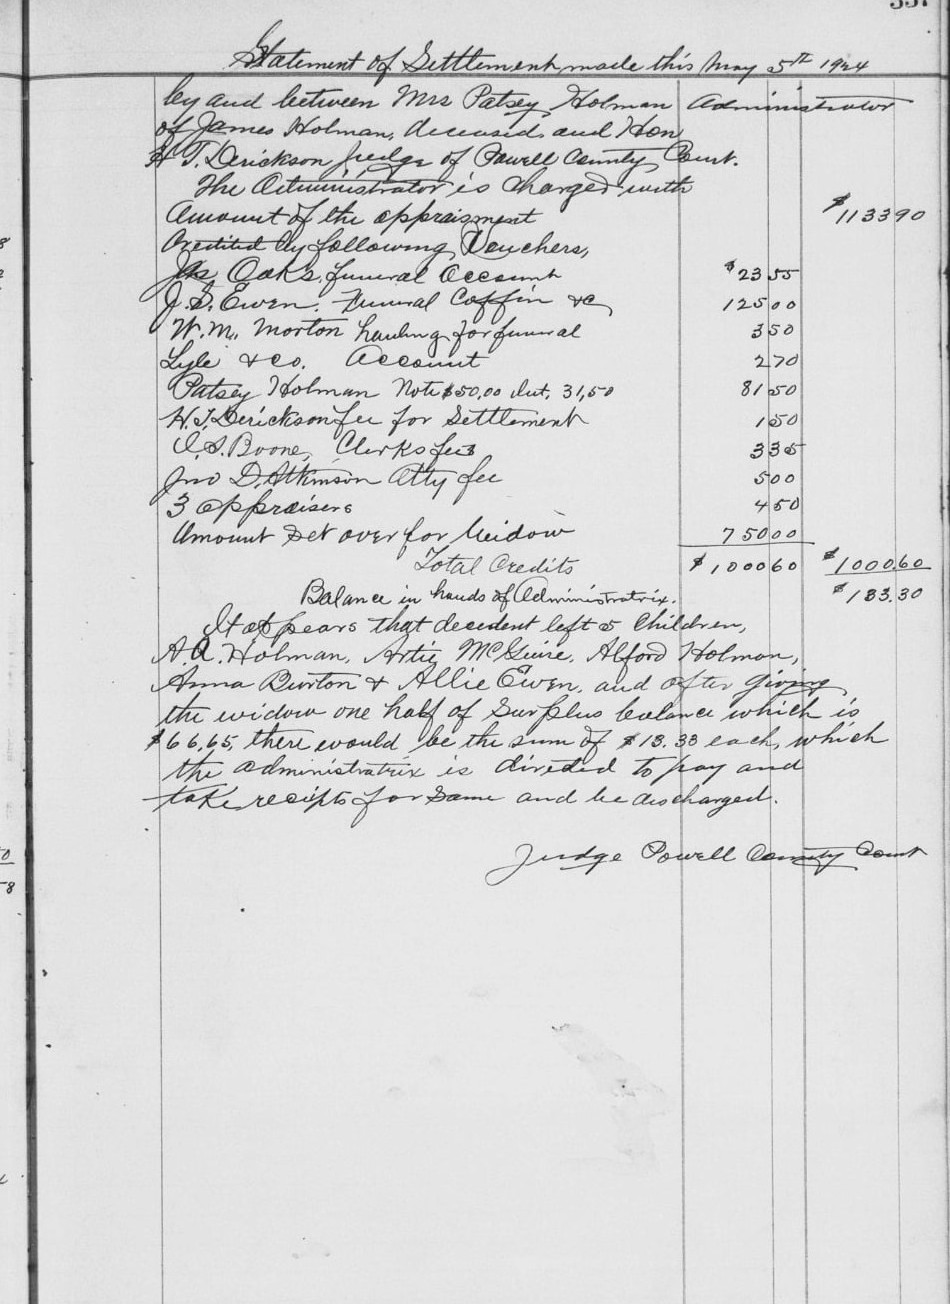 337
Statement of Settlement made this May 5th 1924
by and between Mrs Patsey Holman Administrator
of James Holman, deceased, and Hon
H T. Derickson judge of Powell County Court.
The Administrator is charged with
Amount of the appraisment $1133 90
Credited by following Vouchers,
Jas Oaks, funeral Account $23 55
J. S. Ewen. Funeral Coffin &c 125 00
W. M. Morton hauling for funeral 3 50
Lyle & Co. Account 2 70
Patsey Holman Note $50,00 Int. 31,50 81 50
H. T. Derickson fee for Settlement 1 50
I. S. Boone, Clerks fees 3 35
Jno D. Atkinson Atty fee 5 00
3 appraisers 4 50
Amount set over for Widow 750 00
Total Credits $1000 60 $1000.60
Balance in hands of Administratrix. $133.30
It appears that decedent left 5 Children,
A. A. Holman, Artie McGuire, Alford Holman,
Anna Burton & Allie Ewen, and after giving
the widow one half of Surplus balance which is
$66.65, there would be the sum of $13.33 each, which
the administratrix is directed to pay and
take recipts for same and be discharged.
Judge Powell County Court